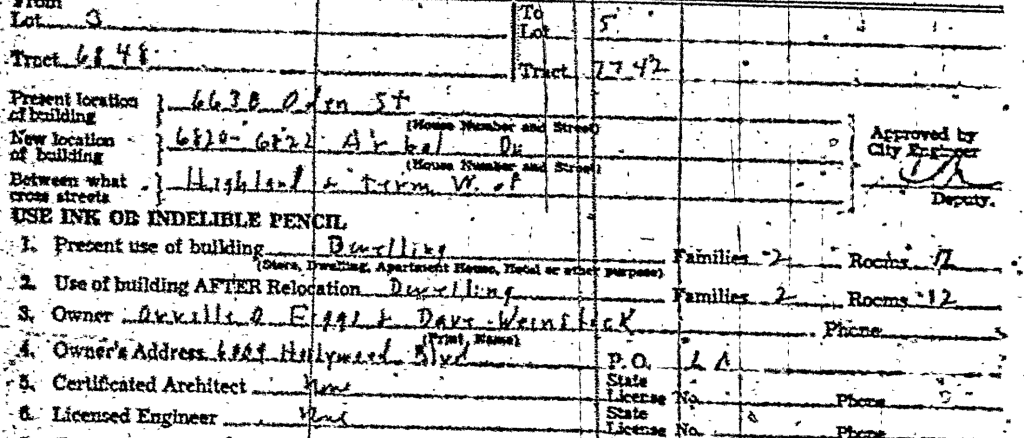 From To
Lot 3 Lot 5
Tract 6848 Tract 7742
Present location of building } 6638 Oden St
(House Number and Street)
New location of building } 6820-6822 Dr
(House Number and Street)
Approved by City Engineer
Deputy.
Between what cross streets } Highland & term W. of
USE INK OR INDELIBLE PENCIL
1. Present use of building Dwelling Families 2 Rooms 12
(Store, Dwelling, Apartment House, Hotel or other purpose)
2. Use of building AFTER Relocation Dwelling Families 2 Rooms 12
3. Owner Orville O & Dave Weinstock Phone
(Print Name)
4. Owner's Address Hollywood Blvd P. O. LA
5. Certificated Architect None State License No. Phone
6. Licensed Engineer None State License No. Phone